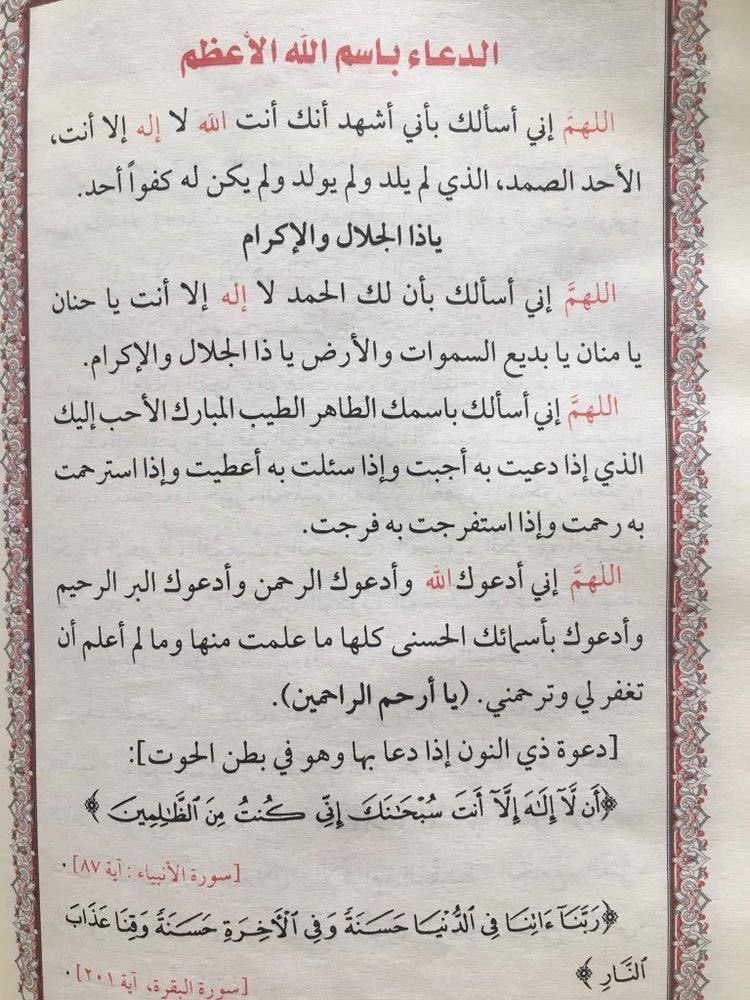 الدعاء باسم الله الأعظم
اللهمَّ إني أسألك بأني أشهد أنك أنت الله لا إله إلا أنت،
الأحد الصمد، الذي لم يلد ولم يولد ولم يكن له كفواً أحد.
ياذا الجلال والإكرام
اللهمَّ إني أسألك بأن لك الحمد لا إله إلا أنت يا حنان
يا منان يا بديع السموات والأرض يا ذا الجلال والإكرام.
اللهمَّ إني أسألك باسمك الطاهر الطيب المبارك الأحب إليك
الذي إذا دعيت به أجبت وإذا سئلت به أعطيت وإذا استرحمت
به رحمت وإذا استفرجت به فرجت.
اللهمَّ إني أدعوك الله وأدعوك الرحمن وأدعوك البر الرحيم
وأدعوك بأسمائك الحسنى كلها ما علمت منها وما لم أعلم أن
تغفر لي وترحمني. (يا أرحم الراحمين).
[دعوة ذي النون إذا دعا بها وهو في بطن الحوت]:
﴿أَن لَّآ إِلَٰهَ إِلَّآ أَنتَ سُبْحَٰنَكَ إِنِّي كُنتُ مِنَ ٱلظَّٰلِمِينَ﴾
[سورة الأنبياء: آية ٨٧].
﴿رَبَّنَآ ءَاتِنَا فِي ٱلدُّنْيَا حَسَنَةً وَفِي ٱلْآخِرَةِ حَسَنَةً وَقِنَا عَذَابَ
ٱلنَّارِ﴾
[سورة البقرة، آية ٢٠١].